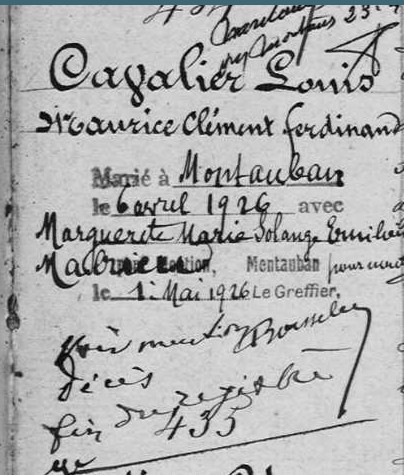 Cavalier Louis
Maurice Clément Ferdinand
Marié à Montauban
le 6 avril 1926 avec
Marguerite Marie Solange Emilie
Mention, Montauban pour
le 1 Mai 1926 Le Greffier,
Voir mention
décès
fin du registre
435